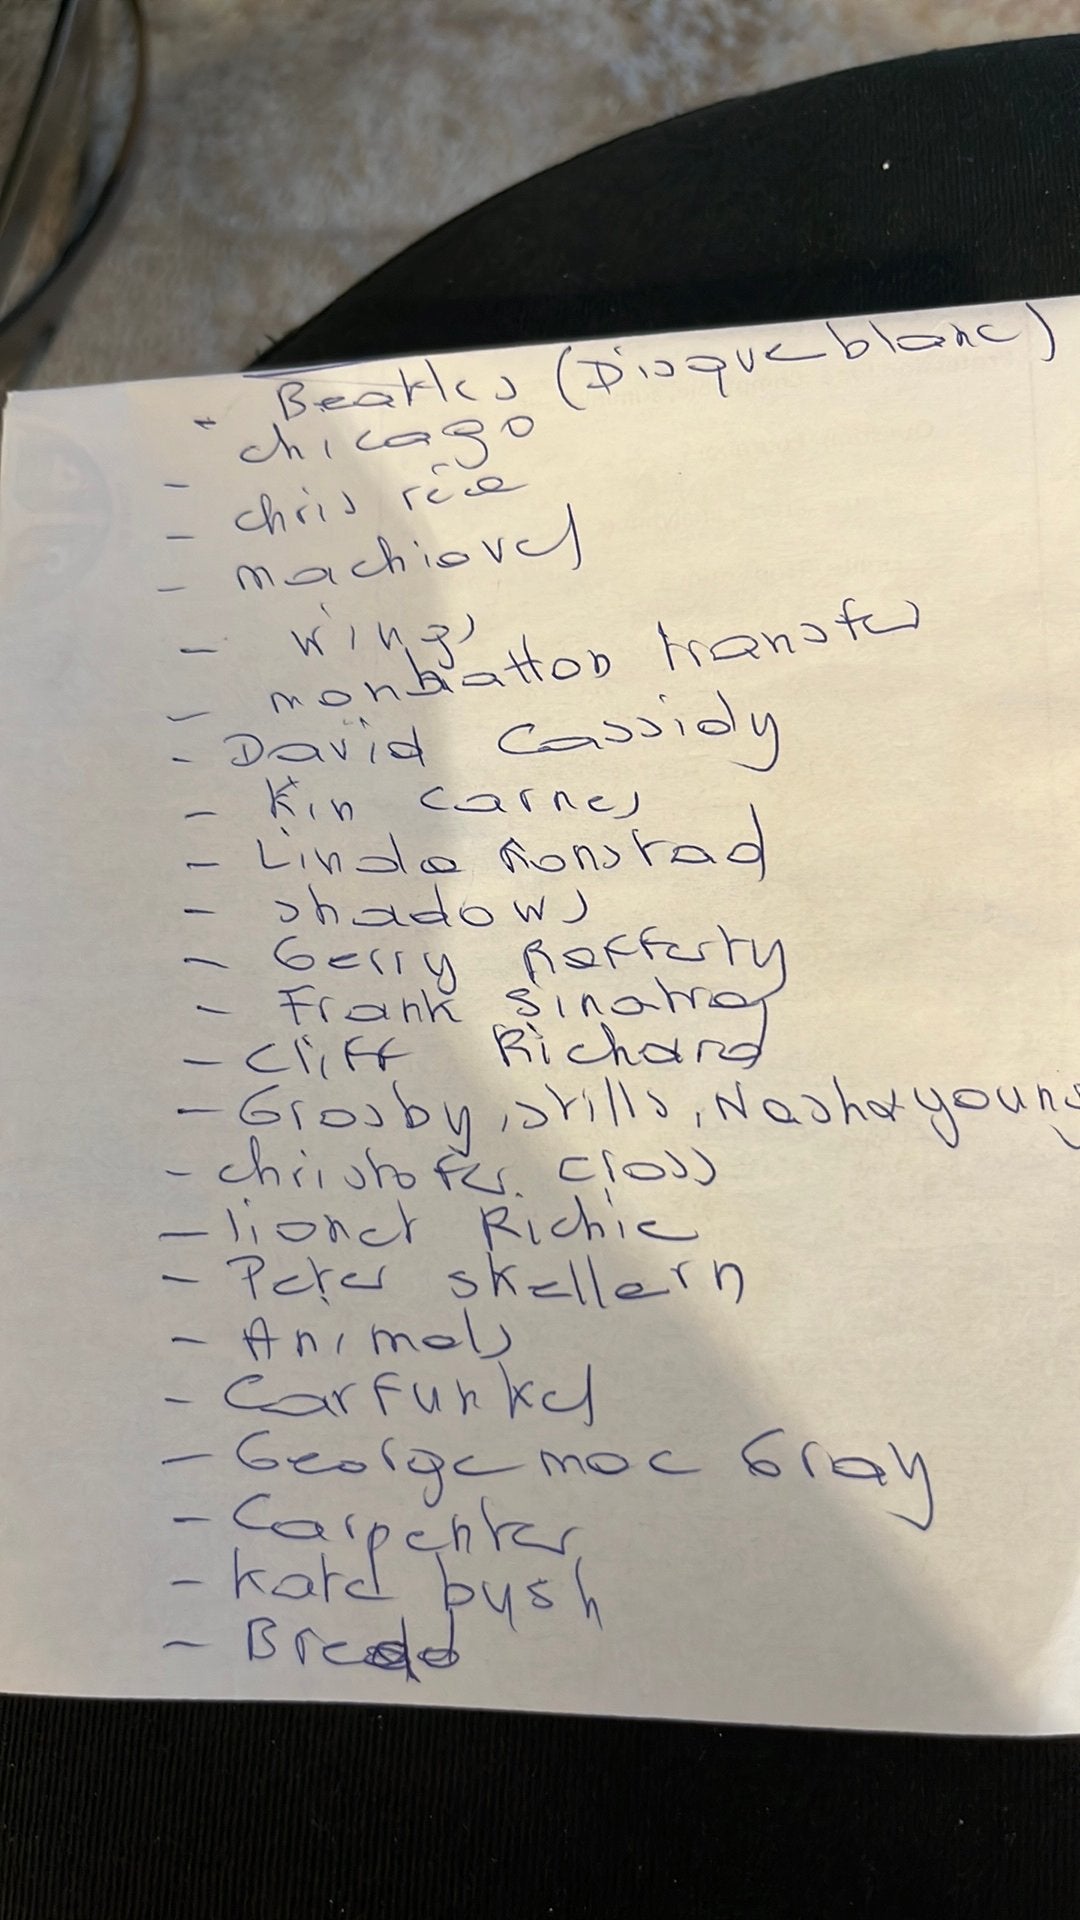 Beatles (Disque blanc)
- chicago
- chris rea
- machiavel
- wings
- manhatton transfer
- David Cassidy
- Kin carnes
- Linda Ronstad
- shadows
- Gerry Rafferty
- Frank Sinatra
- Cliff Richard
- Grosby, stills, Nash & young
- christofer. Closs
- lionel Richie
- Peter skellern
- Animals
- Carfunkel
- George mac Gray
- Carpenter
- Kate bush
- Bread